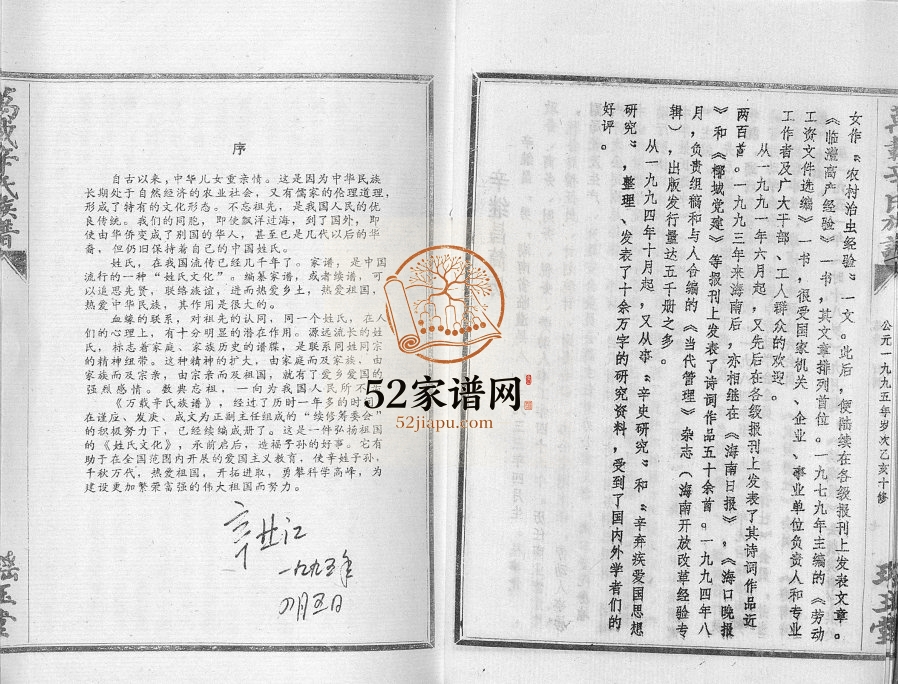 女作“农村治虫经验”一文。此后，便陆续在各级报刊上发表文章。
《临澧高产经验》一书，其文章排列首位。一九七九年主编的《劳动
工资文件选编》一书，很受国家机关、企业、事业单位负责人和专业
工作者及广大干部、工人群众的欢迎。
从一九九一年六月起，又先后在各级报刊上发表了其诗词作品近
两百首。一九九三年来海南后，亦相继在《海南日报》，《海口晚报
》和《椰城党建》等报刊上发表了诗词作品五十余首。一九九四年八
月，负责组稿和与人合编的《当代管理》杂志（海南开放改革经验专
辑），出版发行量达五千册之多。
从一九九四年十月起，又从事“辛史研究”和“辛弃疾爱国思想
研究”，整理、发表了十余万字的研究资料，受到了国内外学者们的
好评。
公元一九九五年岁次乙亥十修
萬載辛氏族譜
瑤玉堂
序
自古以来，中华儿女重亲情。这是因为中华民族
长期处于自然经济的农业社会，又有儒家的伦理道理，
形成了特有的文化形态。不忘祖先，是我国人民的优
良传统。我们的同胞，即使飘洋过海，到了国外，即
使由华侨变成了别国的华人，甚至已是几代以后的华
裔，但仍旧保持着自己的中国姓氏。
姓氏，在我国流传已经几千年了。家谱，是中国
流行的一种“姓氏文化”。编纂家谱，或者续谱，可
以追思先贤，联络族谊，进而热爱乡土，热爱祖国，
热爱中华民族，其作用是很大的。
血缘的联系，对祖先的认同，同一个姓氏，在人
们的心理上，有十分明显的潜在作用。源远流长的姓
氏，标志着家庭、家族历史的谱牒，是联系同姓同宗
的精神纽带。这种精神的扩大，由家庭而及家族，由
家族而及宗亲，由宗亲而及祖国，就有了爱乡爱国的
强烈感情。数典忘祖，一向为我国人民所不
《万载辛氏族谱》，经过了历时一年多的时
在谨应、发庚、成文为正副主任组成的“续修筹委会”
的积极努力下，已经续编成册了。这是一件弘扬祖国
的《姓氏文化》，承前启后，造福子孙的好事。它有
助于在全国范围内开展的爱国主义教育，使辛姓子孙，
千秋万代，热爱祖国，开拓进取，勇攀科学高峰，为
建设更加繁荣富强的伟大祖国而努力。
辛世江
一九九五年
四月五日
萬載辛氏族譜
瑤玉堂
52家谱网
52jiapu.com